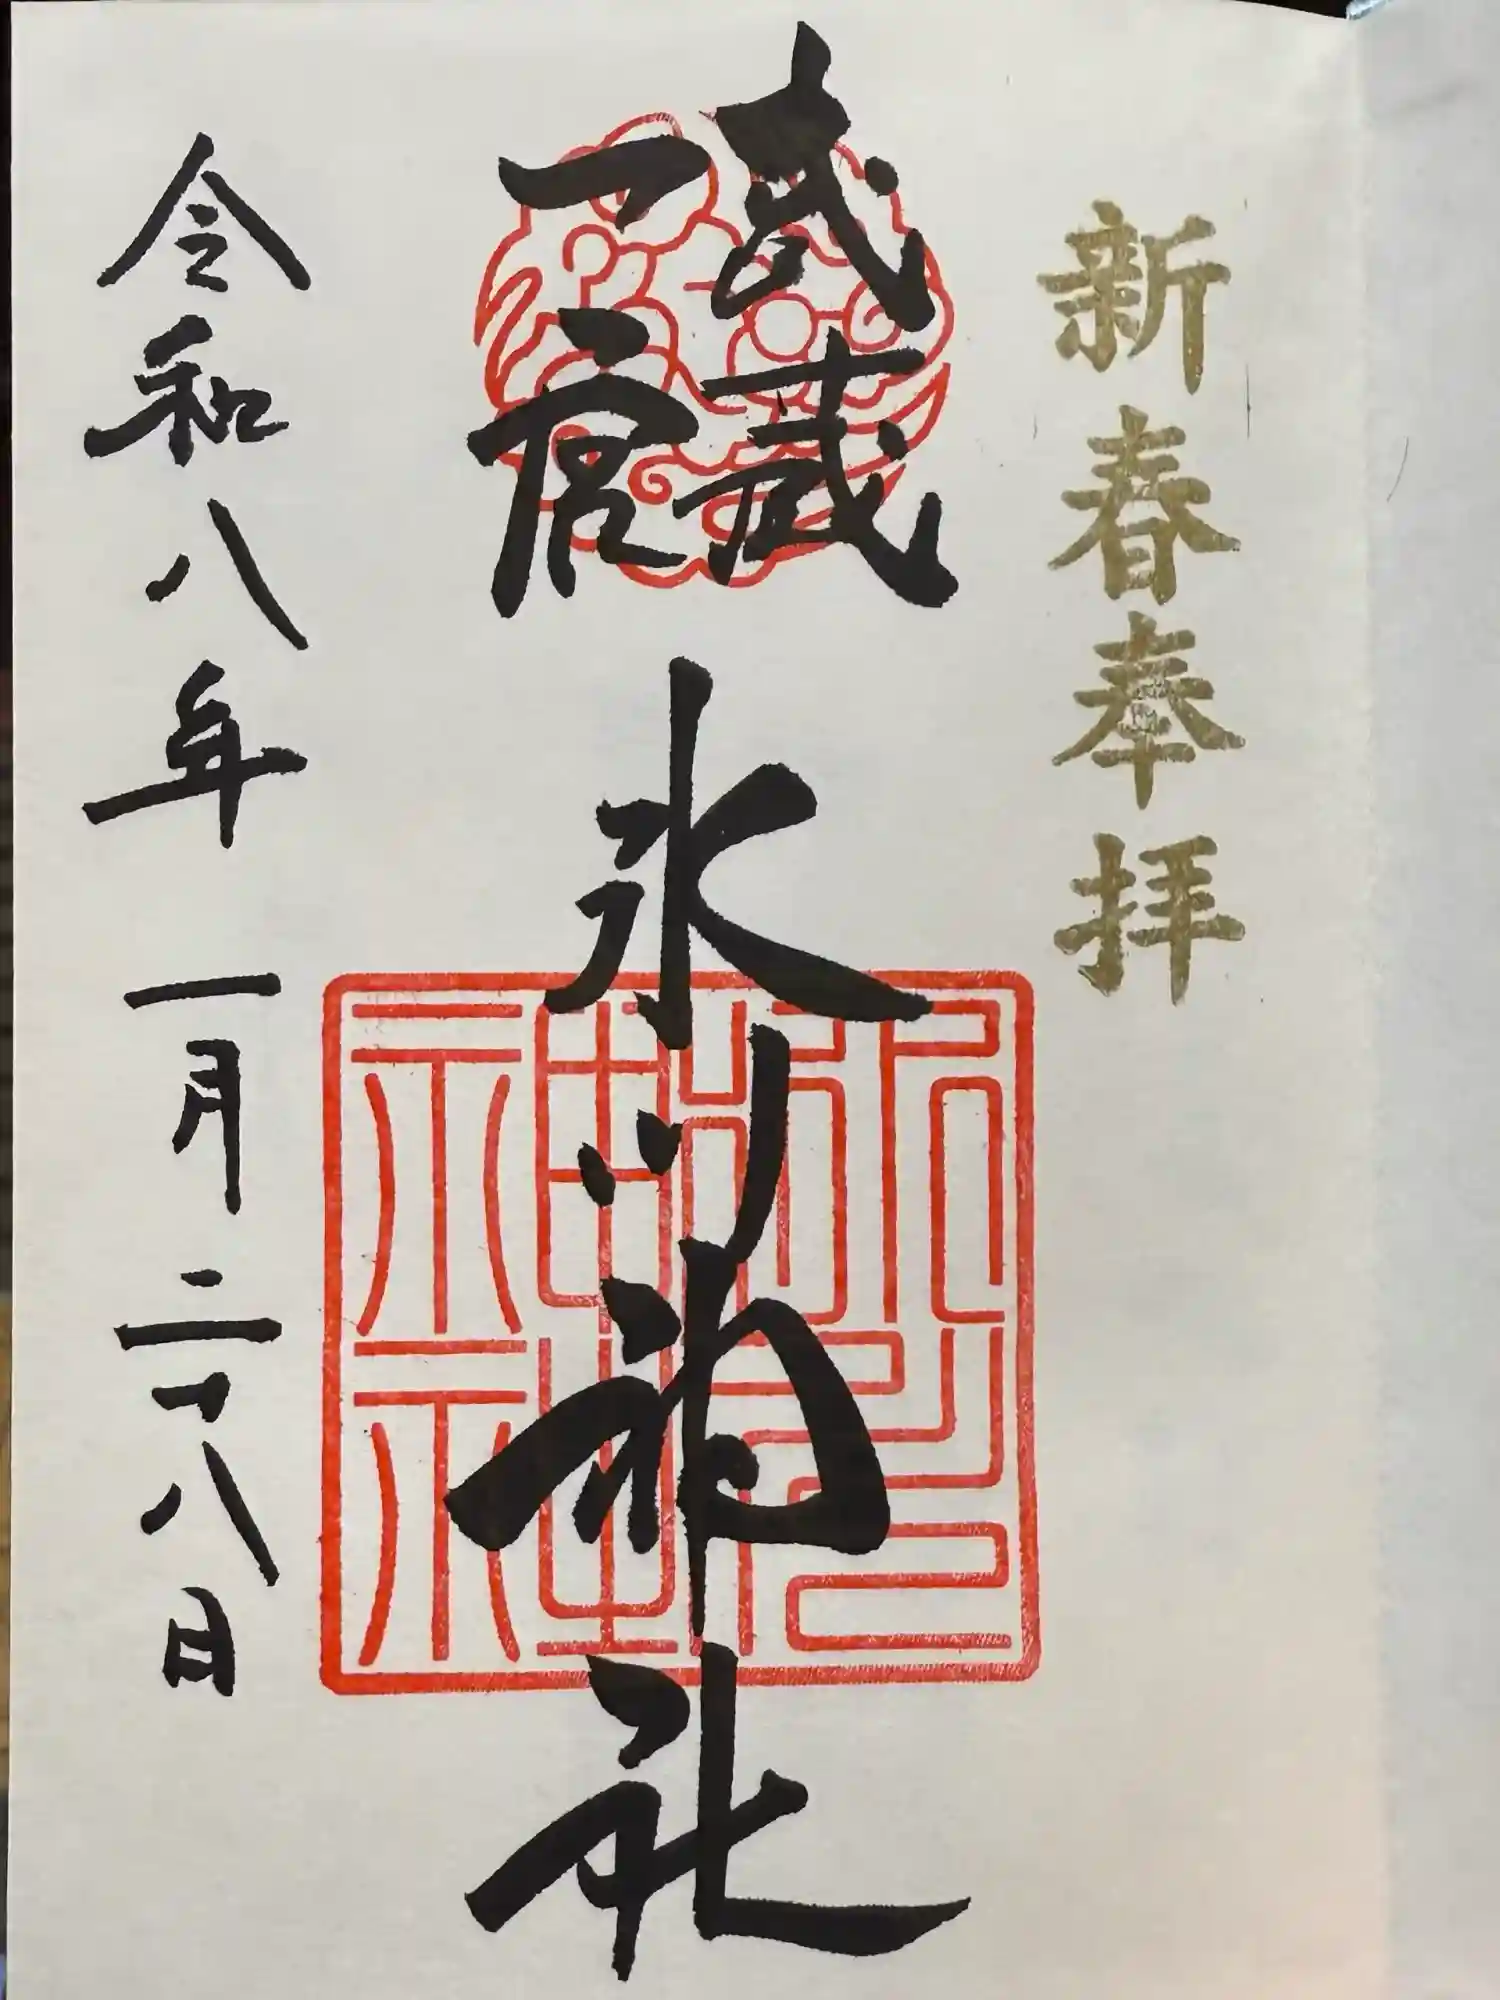 新春奉拝
武蔵
一宮
氷川神社
氷川
神社
令和八年一月二十八日